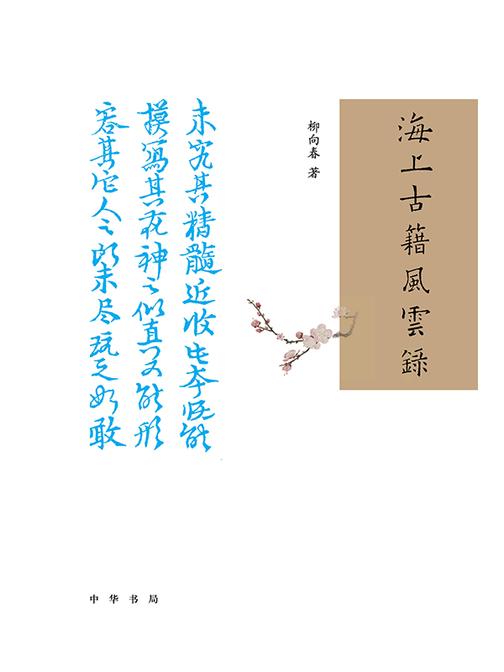 海上古籍風雲録
柳向春 著
未究其精髓近收此本既能
摸寫其神之似直又能形
容其它人之所未尽玩之如敢
中华书局